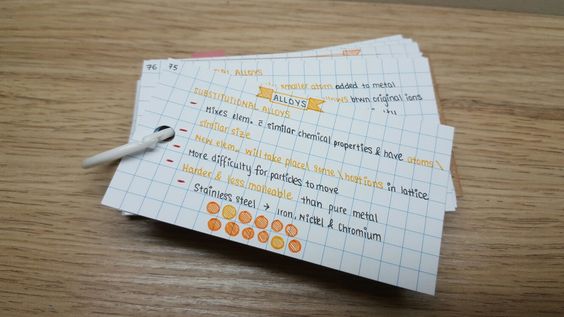 76 75
ALLOYS
smaller atom added to metal
btwn original ions
ALLOYS
SUBSTITUTIONAL ALLOYS
- Mixes elem. c̄ similar chemical properties & have atoms \
similar size
- New elem. will take place \ some \ host ions in lattice
- More difficulty for particles to move
- Harder & less malleable than pure metal
- Stainless steel → Iron, Nickel & Chromium